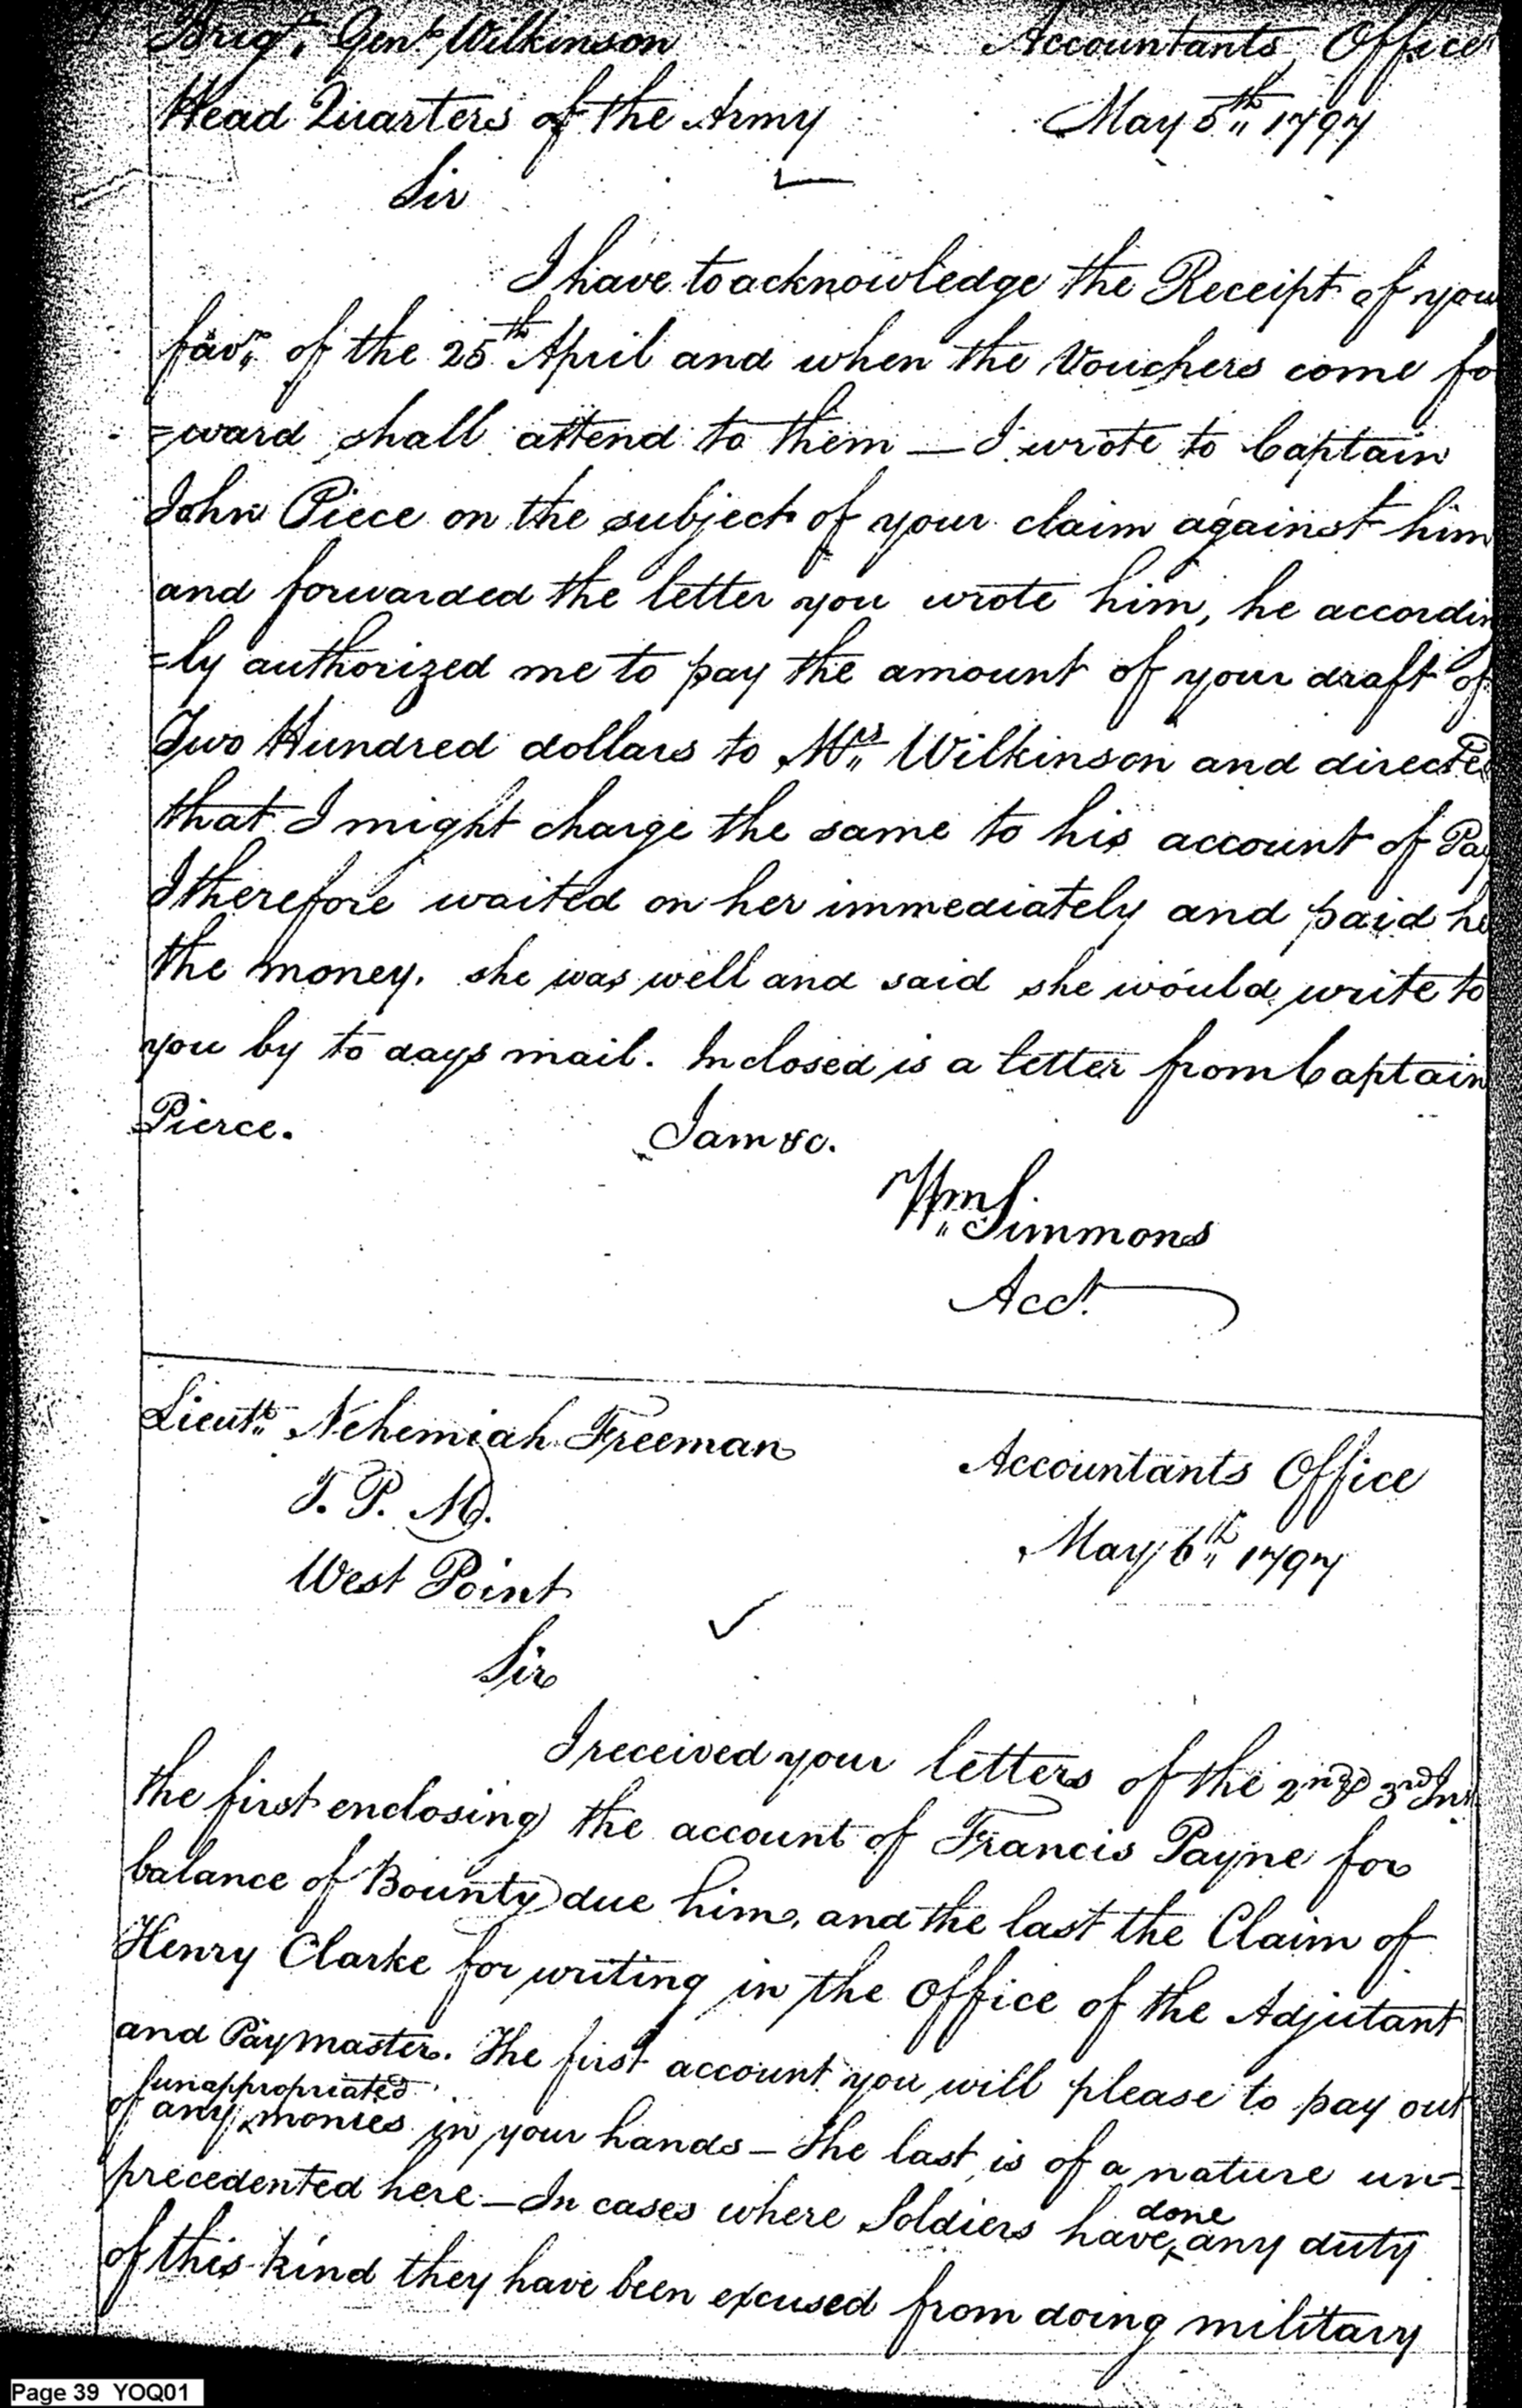 Brigt. Genl. Wilkinson Accountants Office
Head Quarters of the Army May 5th 1797
Sir
I have to acknowledge the Receipt of your
favr. of the 25th April and when the Vouchers come fo
=ward shall attend to them — I wrote to Captain
John Piece on the subject of your claim against him
and forwarded the letter you wrote him, he accordin
=ly authorized me to pay the amount of your draft of
Two Hundred dollars to Mrs Wilkinson and directed
that I might charge the same to his account of Pay
I therefore waited on her immediately and paid he
the money. she was well and said she would write to
you by to days mail. Inclosed is a letter from Captain
Pierce. I am &c.
Wm Simmons
Acct.
Lieutt. Nehemiah Freeman Accountants Office
T. P. M. May 6th 1797
West Point
Sir
I received your letters of the 2nd & 3rd Inst
the first enclosing the account of Francis Payne for
balance of Bounty due him, and the last the Claim of
Henry Clarke for writing in the Office of the Adjutant
and Paymaster. The first account you will please to pay out
of any unappropriated monies in your hands — The last is of a nature un=
precedented here — In cases where Soldiers have done any duty
of this kind they have been excused from doing military
Page 39 YOQ01